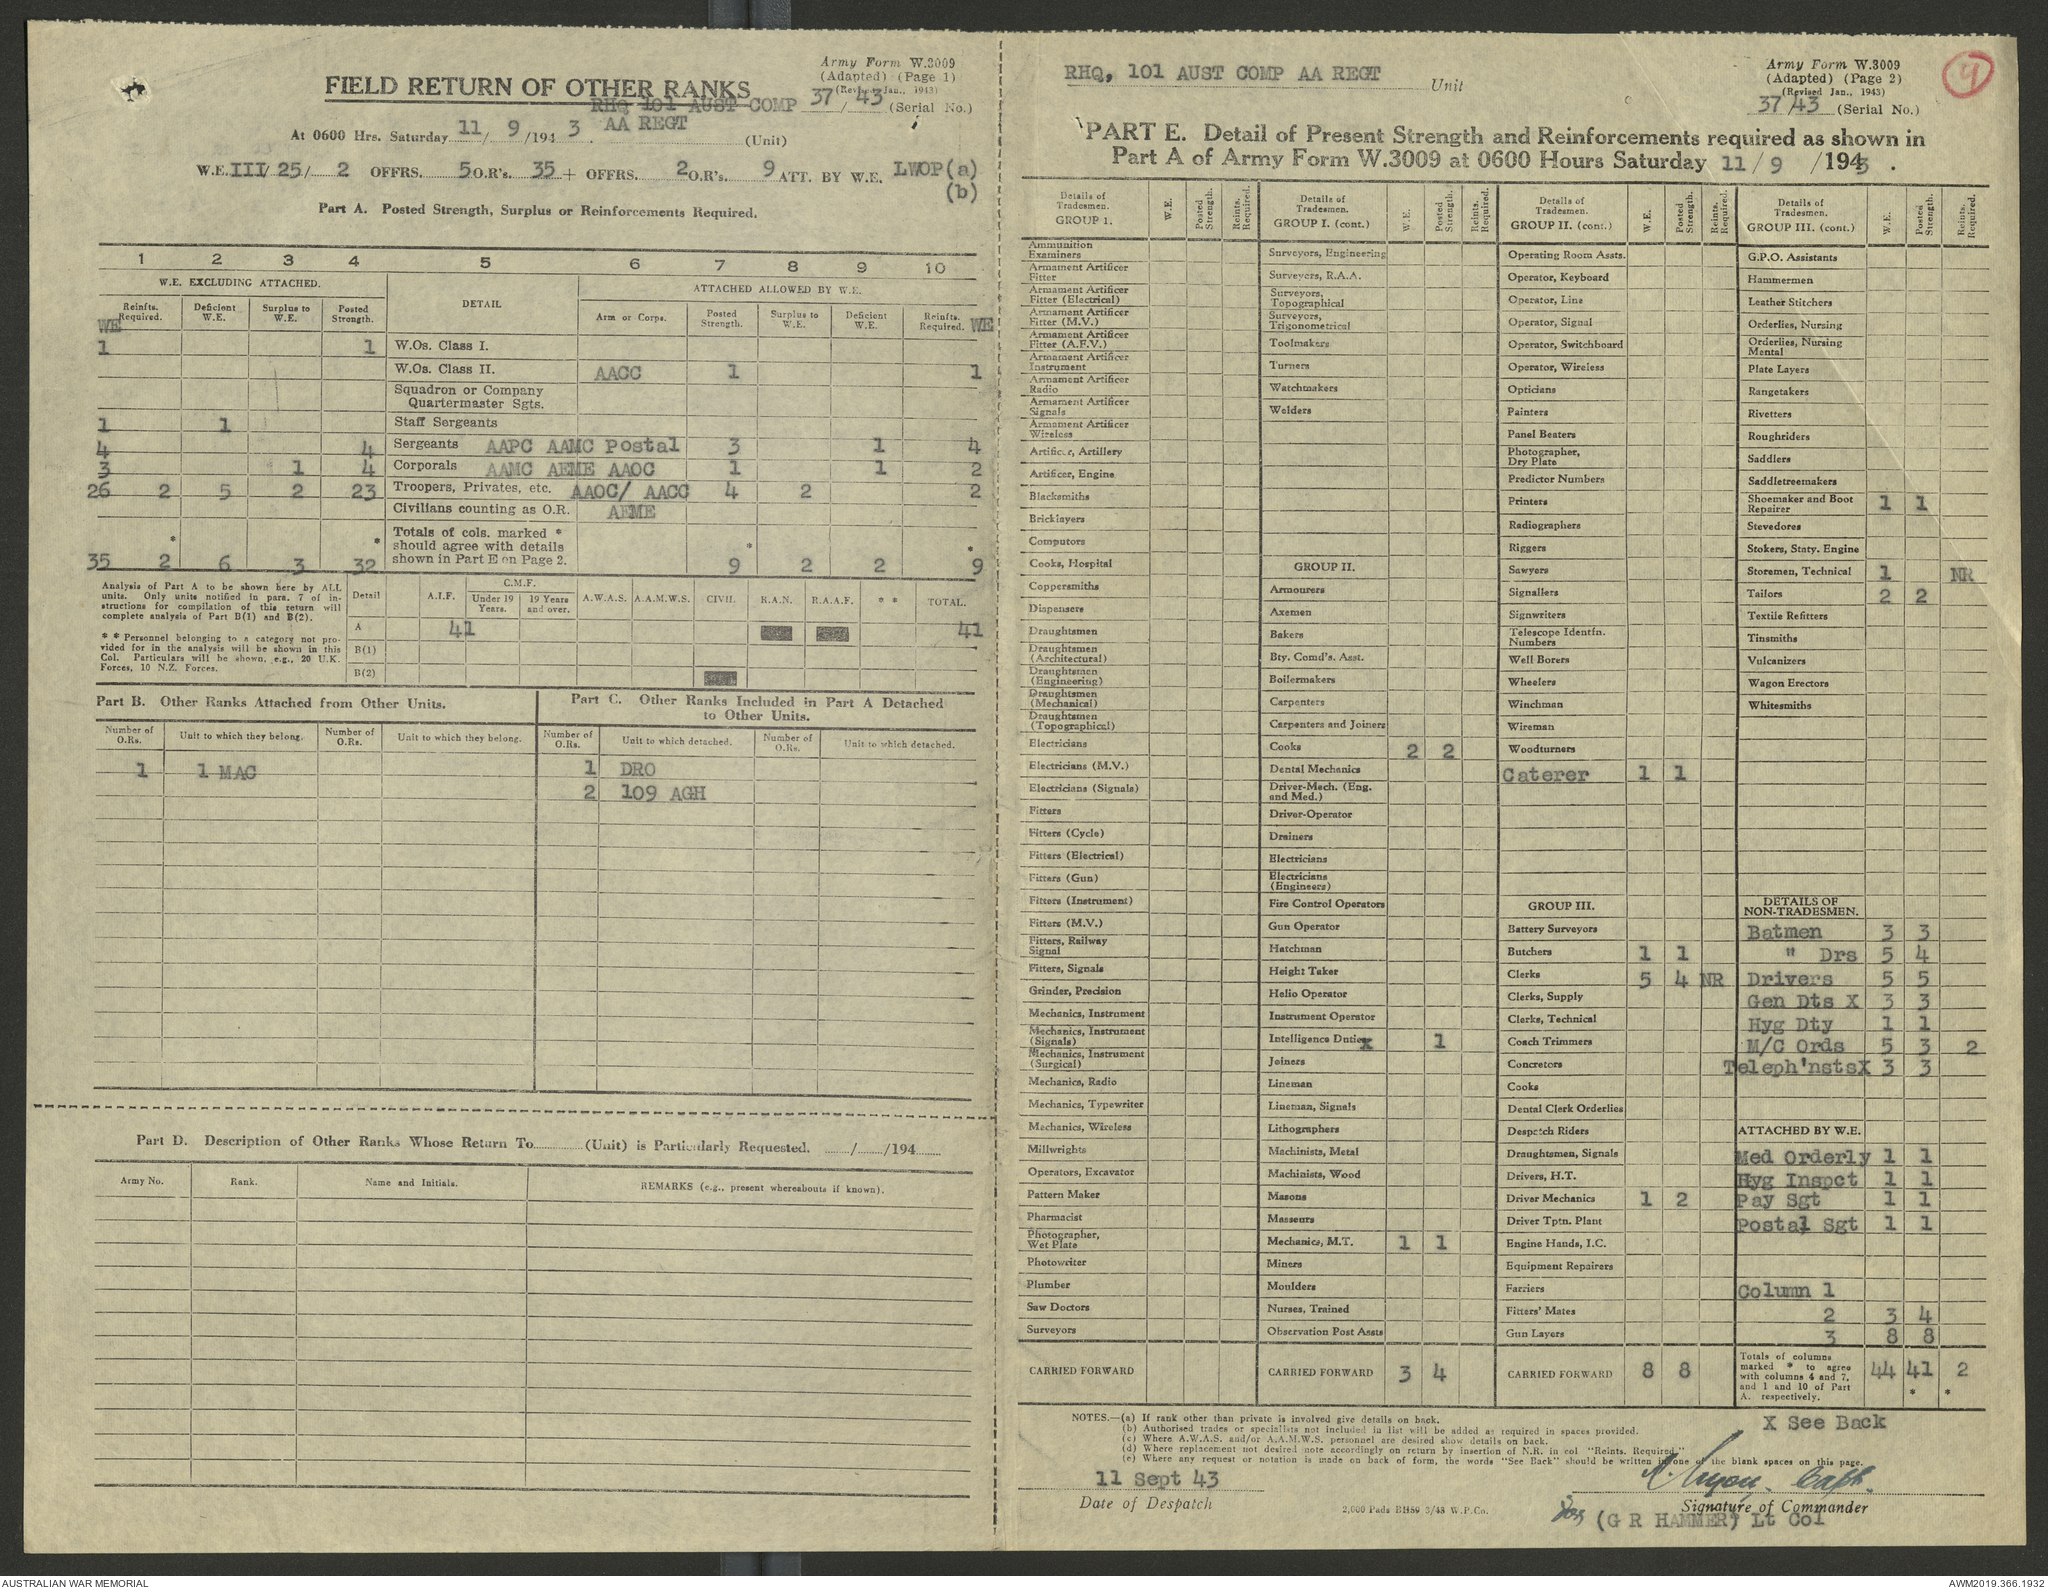 Army Form W.3009
(Adapted) (Page 1)
(Revised Jan., 1943)
FIELD RETURN OF OTHER RANKS
RHQ 101 AUST COMP 37/43 (Serial No.)
At 0600 Hrs. Saturday 11/ 9 /194 3 . AA REGT (Unit)
W.E. III/ 25/ 2 OFFRS. 5 O.R's. 35 + OFFRS. 2 O.R's. 9 ATT. BY W.E. LWOP(a)
(b)
Part A. Posted Strength, Surplus or Reinforcements Required.
1 2 3 4 5 6 7 8 9 10
W.E. EXCLUDING ATTACHED. DETAIL ATTACHED ALLOWED BY W.E.
WE Reinfts. Required. Deficient W.E. Surplus to W.E. Posted Strength. Arm or Corps. Posted Strength. Surplus to W.E. Deficient W.E. Reinfts. Required. WE
1 1 W.Os. Class I.
W.Os. Class II. AACC 1 1
Squadron or Company
Quartermaster Sgts.
1 1 Staff Sergeants
4 4 Sergeants AAPC AAMC Postal 3 1 4
3 1 4 Corporals AAMC AEME AAOC 1 1 2
26 2 5 2 23 Troopers, Privates, etc. AAOC/ AACC 4 2 2
Civilians counting as O.R. AEME
Totals of cols. marked *
should agree with details
shown in Part E on Page 2.
35 2 6 3 32 9 2 2 9
Analysis of Part A to be shown here by ALL
units. Only units notified in para. 7 of in-
structions for compilation of this return will
complete analysis of Part B(1) and B(2).
* * Personnel belonging to a category not pro-
vided for in the analysis will be shown in this
Col. Particulars will be shown, e.g., 20 U.K.
Forces, 10 N.Z. Forces.
Detail A.I.F. C.M.F. Under 19 Years. 19 Years and over. A.W.A.S. A.A.M.W.S. CIVIL R.A.N. R.A.A.F. * * TOTAL.
A 41 41
B(1)
B(2)
Part B. Other Ranks Attached from Other Units.
Number of O.Rs. Unit to which they belong. Number of O.Rs. Unit to which they belong.
1 1 MAC
Part C. Other Ranks Included in Part A Detached
to Other Units.
Number of O.Rs. Unit to which detached. Number of O.Rs. Unit to which detached.
1 DRO
2 109 AGH
Part D. Description of Other Ranks Whose Return To (Unit) is Particularly Requested. / /194
Army No. Rank. Name and Initials. REMARKS (e.g., present whereabouts if known).
RHQ, 101 AUST COMP AA REGT Unit
Army Form W.3009
(Adapted) (Page 2)
(Revised Jan., 1943)
37/43 (Serial No.)
4
PART E. Detail of Present Strength and Reinforcements required as shown in
Part A of Army Form W.3009 at 0600 Hours Saturday 11 / 9 /1943 .
Details of Tradesmen. GROUP 1. W.E. Posted Strength. Reints. Required.
Ammunition Examiners
Armament Artificer Fitter
Armament Artificer Fitter (Electrical)
Armament Artificer Fitter (M.V.)
Armament Artificer Fitter (A.F.V.)
Armament Artificer Instrument
Armament Artificer Radio
Armament Artificer Signals
Armament Artificer Wireless
Artificer, Artillery
Artificer, Engine
Blacksmiths
Bricklayers
Computors
Cooks, Hospital
Coppersmiths
Dispensers
Draughtsmen
Draughtsmen (Architectural)
Draughtsmen (Engineering)
Draughtsmen (Mechanical)
Draughtsmen (Topographical)
Electricians
Electricians (M.V.)
Electricians (Signals)
Fitters
Fitters (Cycle)
Fitters (Electrical)
Fitters (Gun)
Fitters (Instrument)
Fitters (M.V.)
Fitters, Railway Signal
Fitters, Signals
Grinder, Precision
Mechanics, Instrument
Mechanics, Instrument (Signals)
Mechanics, Instrument (Surgical)
Mechanics, Radio
Mechanics, Typewriter
Mechanics, Wireless
Millwrights
Operators, Excavator
Pattern Maker
Pharmacist
Photographer, Wet Plate
Photowriter
Plumber
Saw Doctors
Surveyors
CARRIED FORWARD
Details of Tradesmen. GROUP I. (cont.) W.E. Posted Strength. Reints. Required.
Surveyors, Engineering
Surveyors, R.A.A.
Surveyors, Topographical
Surveyors, Trigonometrical
Toolmakers
Turners
Watchmakers
Welders
GROUP II.
Armourers
Axemen
Bakers
Bty. Comd's. Asst.
Boilermakers
Carpenters
Carpenters and Joiners
Cooks 2 2
Dental Mechanics
Driver-Mech. (Eng. and Med.)
Driver-Operator
Drainers
Electricians
Electricians (Engineers)
Fire Control Operators
Gun Operator
Hatchman
Height Taker
Helio Operator
Instrument Operator
Intelligence Duties x 1
Joiners
Lineman
Lineman, Signals
Lithographers
Machinists, Metal
Machinists, Wood
Masons
Masseurs
Mechanics, M.T. 1 1
Miners
Moulders
Nurses, Trained
Observation Post Assts
CARRIED FORWARD 3 4
Details of Tradesmen. GROUP II. (cont.) W.E. Posted Strength. Reints. Required.
Operating Room Assts.
Operator, Keyboard
Operator, Line
Operator, Signal
Operator, Switchboard
Operator, Wireless
Opticians
Painters
Panel Beaters
Photographer, Dry Plate
Predictor Numbers
Printers
Radiographers
Riggers
Sawyers
Signallers
Signwriters
Telescope Identfn. Numbers
Well Borers
Wheelers
Winchman
Wireman
Woodturners
Caterer 1 1
GROUP III.
Battery Surveyors
Butchers 1 1
Clerks 5 4 NR
Clerks, Supply
Clerks, Technical
Coach Trimmers
Concretors
Cooks
Dental Clerk Orderlies
Despatch Riders
Draughtsmen, Signals
Drivers, H.T.
Driver Mechanics 1 2
Driver Tptn. Plant
Engine Hands, I.C.
Equipment Repairers
Farriers
Fitters' Mates
Gun Layers
CARRIED FORWARD 8 8
Details of Tradesmen. GROUP III. (cont.) W.E. Posted Strength. Reints. Required.
G.P.O. Assistants
Hammermen
Leather Stitchers
Orderlies, Nursing
Orderlies, Nursing Mental
Plate Layers
Rangetakers
Rivetters
Roughriders
Saddlers
Saddletreemakers
Shoemaker and Boot Repairer 1 1
Stevedores
Stokers, Staty. Engine
Storemen, Technical 1 NR
Tailors 2 2
Textile Refitters
Tinsmiths
Vulcanizers
Wagon Erectors
Whitesmiths
DETAILS OF NON-TRADESMEN.
Batmen 3 3
" Drs 5 4
Drivers 5 5
Gen Dts X 3 3
Hyg Dty 1 1
M/C Ords 5 3 2
Teleph'nstsX 3 3
ATTACHED BY W.E.
Med Orderly 1 1
Hyg Inspct 1 1
Pay Sgt 1 1
Postal Sgt 1 1
Column 1
2 3 4
3 8 8
Totals of columns marked * to agree with columns 4 and 7, and 1 and 10 of Part A. respectively. 44 41 2
* *
NOTES.—(a) If rank other than private is involved give details on back.
(b) Authorised trades or specialists not included in list will be added as required in spaces provided.
(c) Where A.W.A.S. and/or A.A.M.W.S. personnel are desired show details on back.
(d) Where replacement not desired note accordingly on return by insertion of N.R. in col "Reints. Required."
(e) Where any request or notation is made on back of form, the words "See Back" should be written in one of the blank spaces on this page.
X See Back
11 Sept 43
Date of Despatch
2,000 Pads BH89 3/43 W.P.Co.
Capt.
Signature of Commander
for (G R HAMMER) Lt Col
AUSTRALIAN WAR MEMORIAL
AWM2019.366.1932